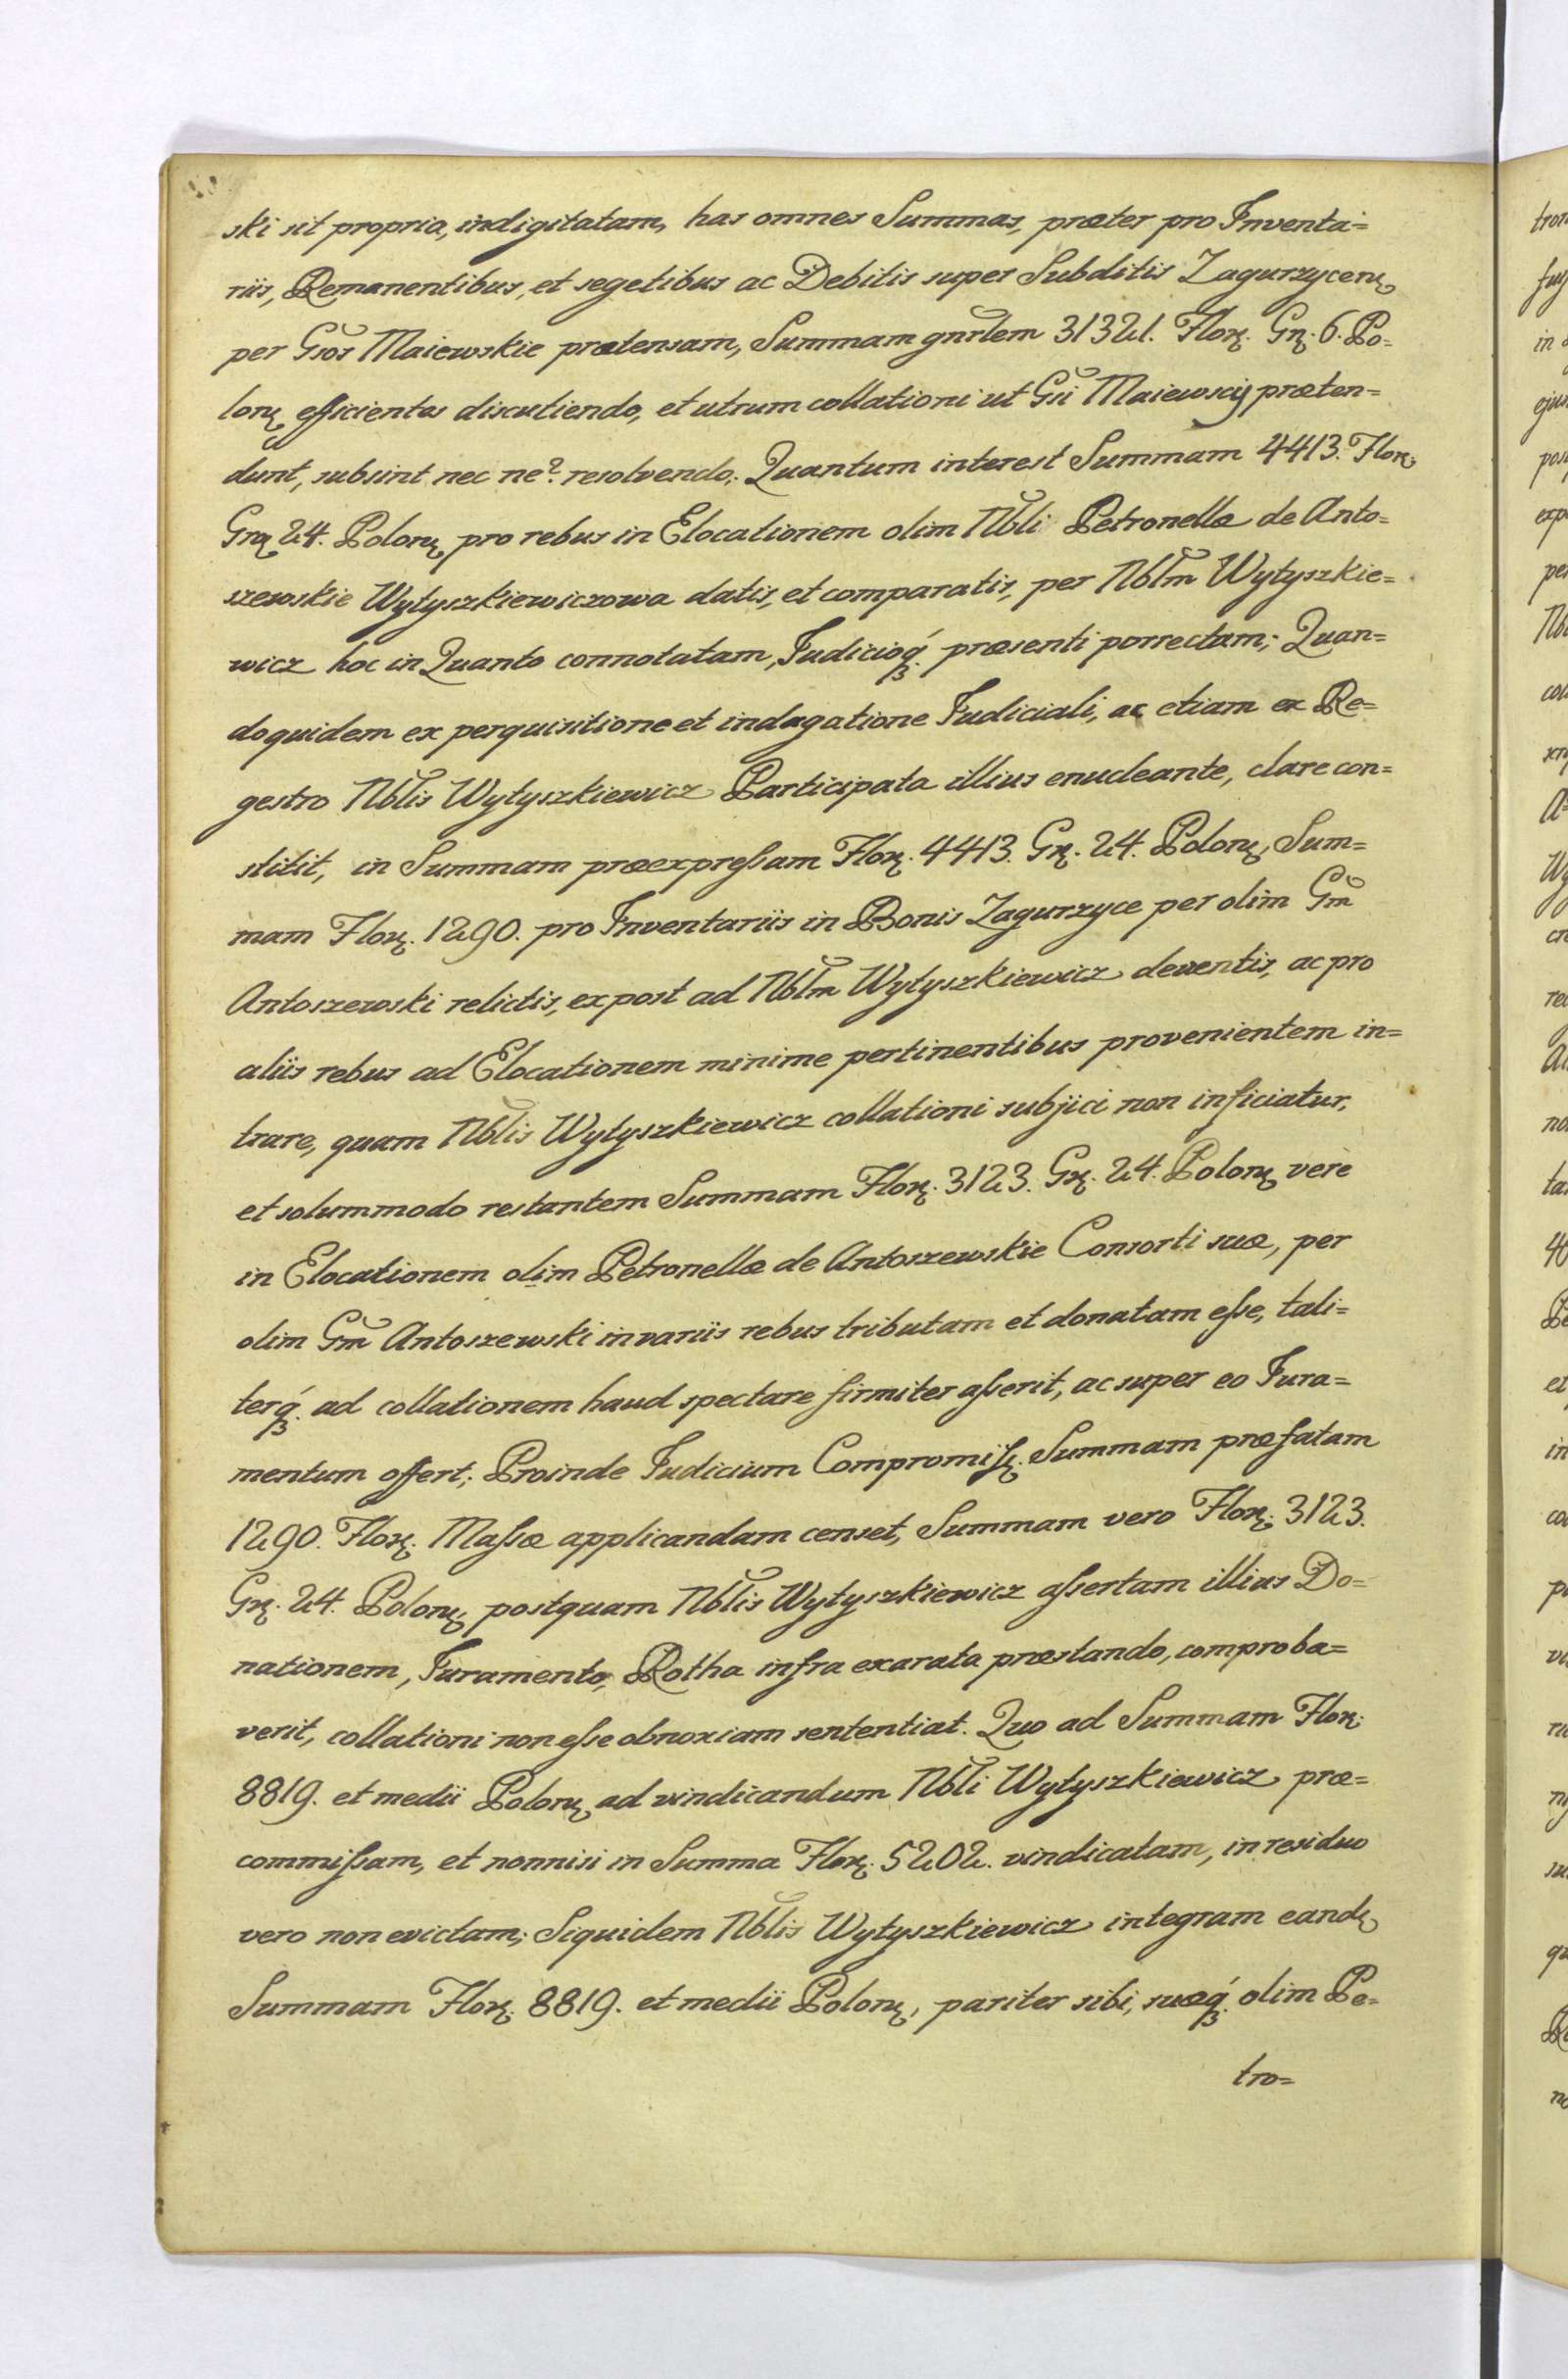 ski sit propria, indigitatam, has omnes Summas, præter pro Inventa=
riis, Remanentibus, et segetibus ac Debitis super Subditis Zagurzycenʒ
per Gsos Maiewskie prætensam, Summam gnrlem 31321. Florʒ. Grʒ. 6. Po=
lonʒ efficientes discutiendo, et utrum collationi ut Gsi Maiewscy præten=
dunt, subsint nec ne? resolvendo. Quantum interest Summam 4413. Florʒ
Grʒ 24. Polonʒ pro rebus in Elocationem olim Nbli Petronellæ de Anto=
szewskie Wytyszkiewiczowa datis, et comparatis, per Nblm Wytyszkie=
wicz hoc in Quanto connotatam, Judicioq́ʒ præsenti porrectam; Quan=
doquidem ex perquisitione et indagatione Judiciali, ac etiam ex Re=
gestro Nblis Wytyszkiewicz Participata illius enucleante, clare con=
stitit, in Summam præexpreſsam Florʒ. 4413. Grʒ. 24. Polonʒ, Sum=
mam Florʒ. 1290. pro Inventariis in Bonis Zagurzyce per olim Gm
Antoszewski relictis, ex post ad Nblm Wytyszkiewicz deventis, ac pro
aliis rebus ad Elocationem minime pertinentibus provenientem in=
trare, quam Nblis Wytyszkiewicz collationi subjici non inficiatur,
et solummodo restantem Summam Florʒ. 3123. Grʒ. 24. Polonʒ vere
in Elocationem olim Petronellæ de Antoszewskie Consorti suæ, per
olim Gm Antoszewski in variis rebus tributam et donatam eſse, tali=
terq́ʒ ad collationem haud spectare firmiter aſserit, ac super eo Jura=
mentum offert; Proinde Judicium Compromiſsʒ. Summam præfatam
1290. Florʒ. Maſsæ applicandam censet, Summam vero Florʒ. 3123.
Grʒ. 24. Polonʒ, postquam Nblis Wytyszkiewicz aſsertam illius Do=
nationem, Juramento, Rotha infra exarata præstando, comproba=
verit, collationi non eſse obnoxiam sententiat. Quo ad Summam Florʒ
8819. et medii Polonʒ ad vindicandum Nbli Wytyszkiewicz præ=
commiſsam, et nonnisi in Summa Florʒ. 5202. vindicatam, in residuo
vero non evictam; Siquidem Nblis Wytyszkiewicz integram eandʒ
Summam Florʒ. 8819. et medii Polonʒ, pariter sibi, suæq́ʒ olim Pe=
tro=